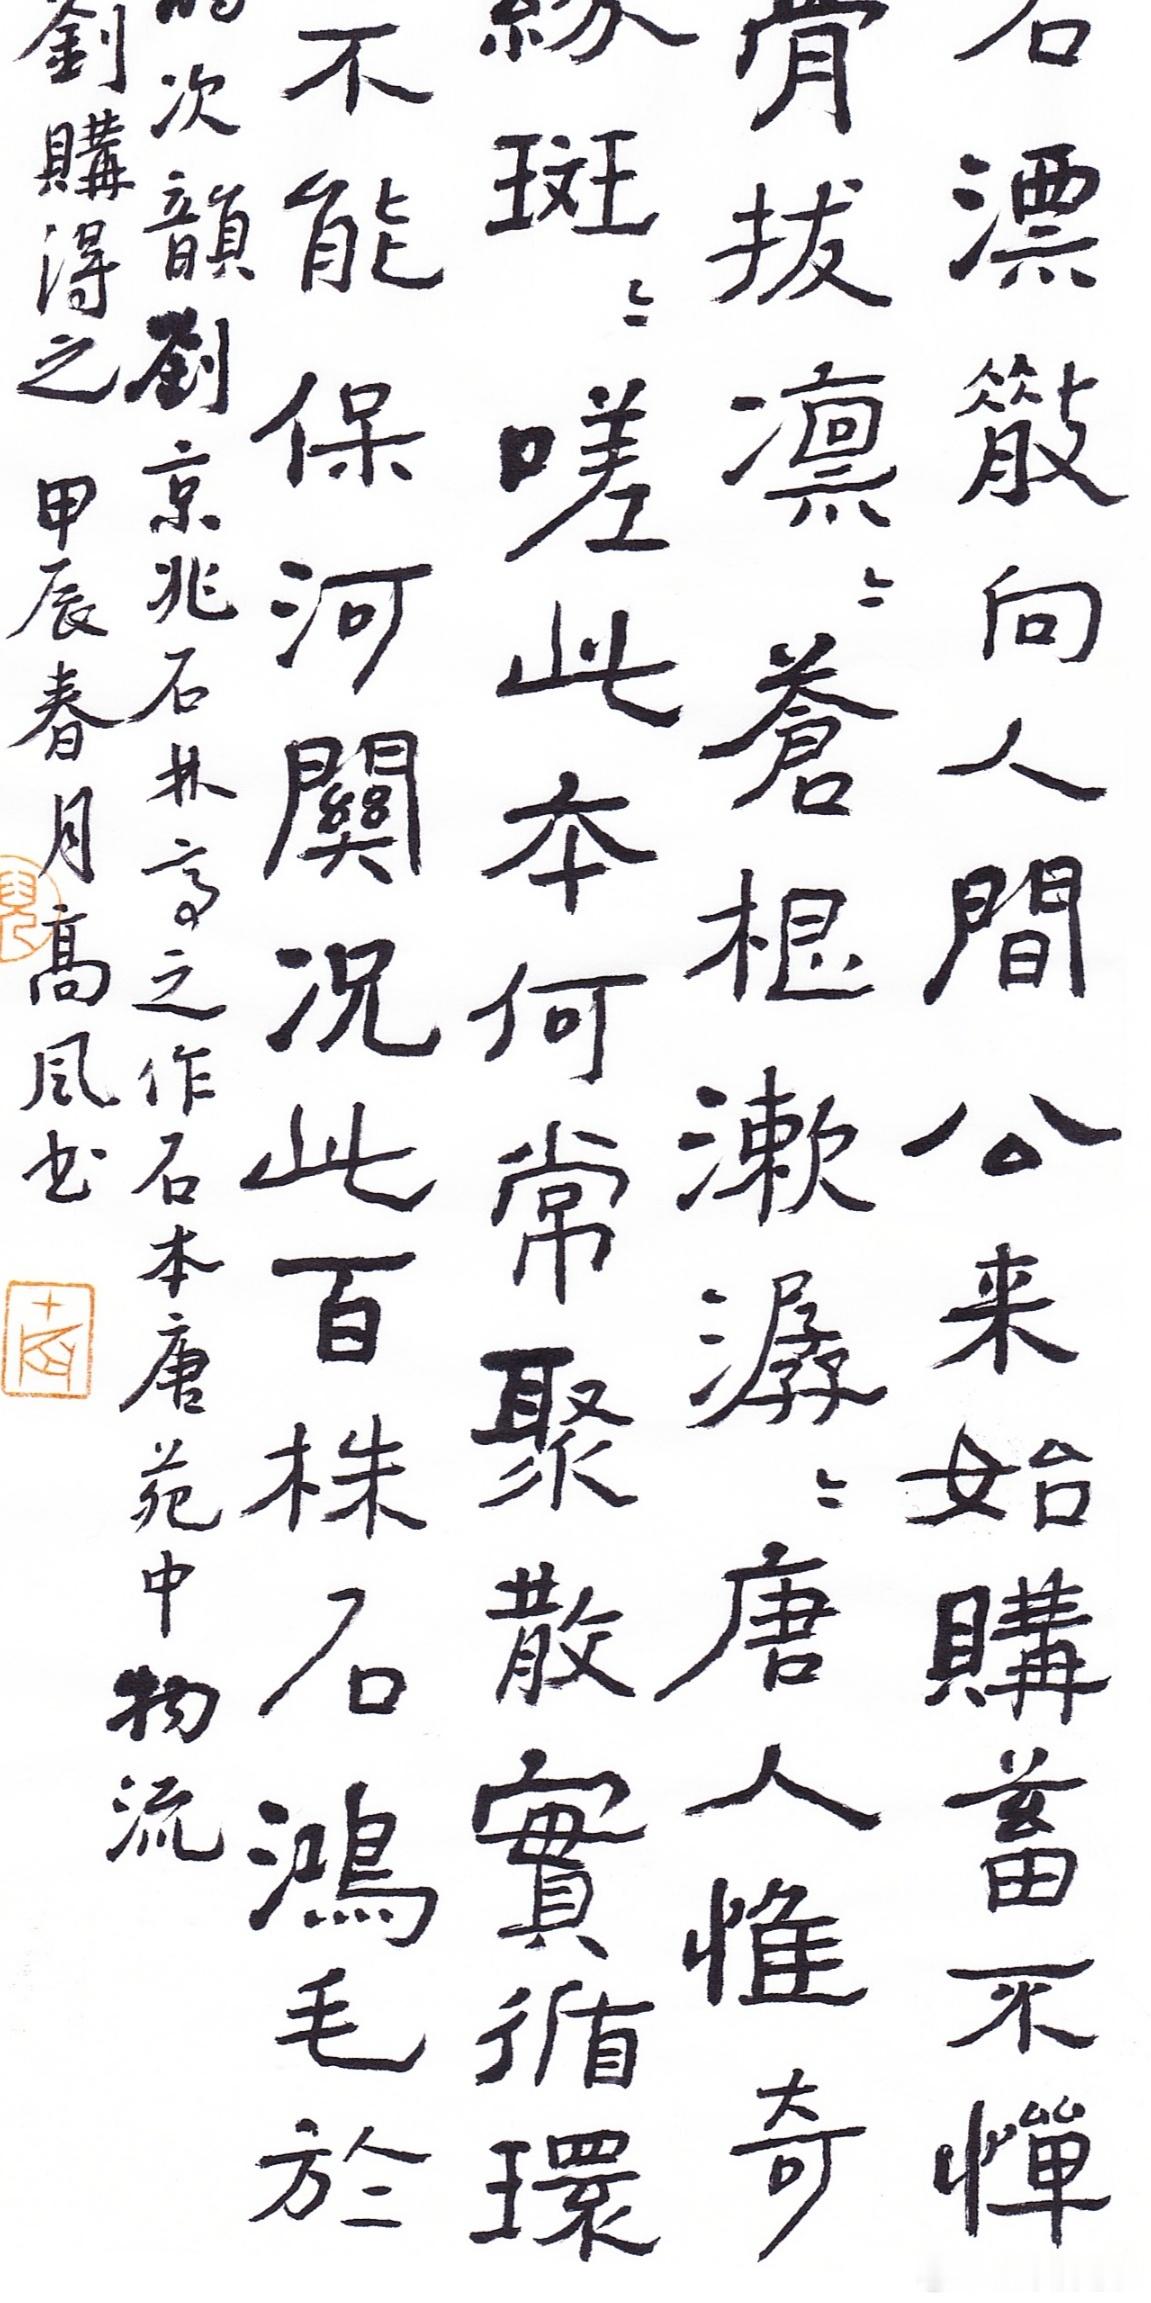 石漂散向人間公来始購蓄不憚
骨拔凛〻蒼根漱潺〻唐人惟奇
緣斑〻嗟此本何常聚散實循環
不能保河關況此百株石鴻毛於
次韻劉京兆石林亭之作石本唐苑中物流
劉購得之 甲辰春月高風书